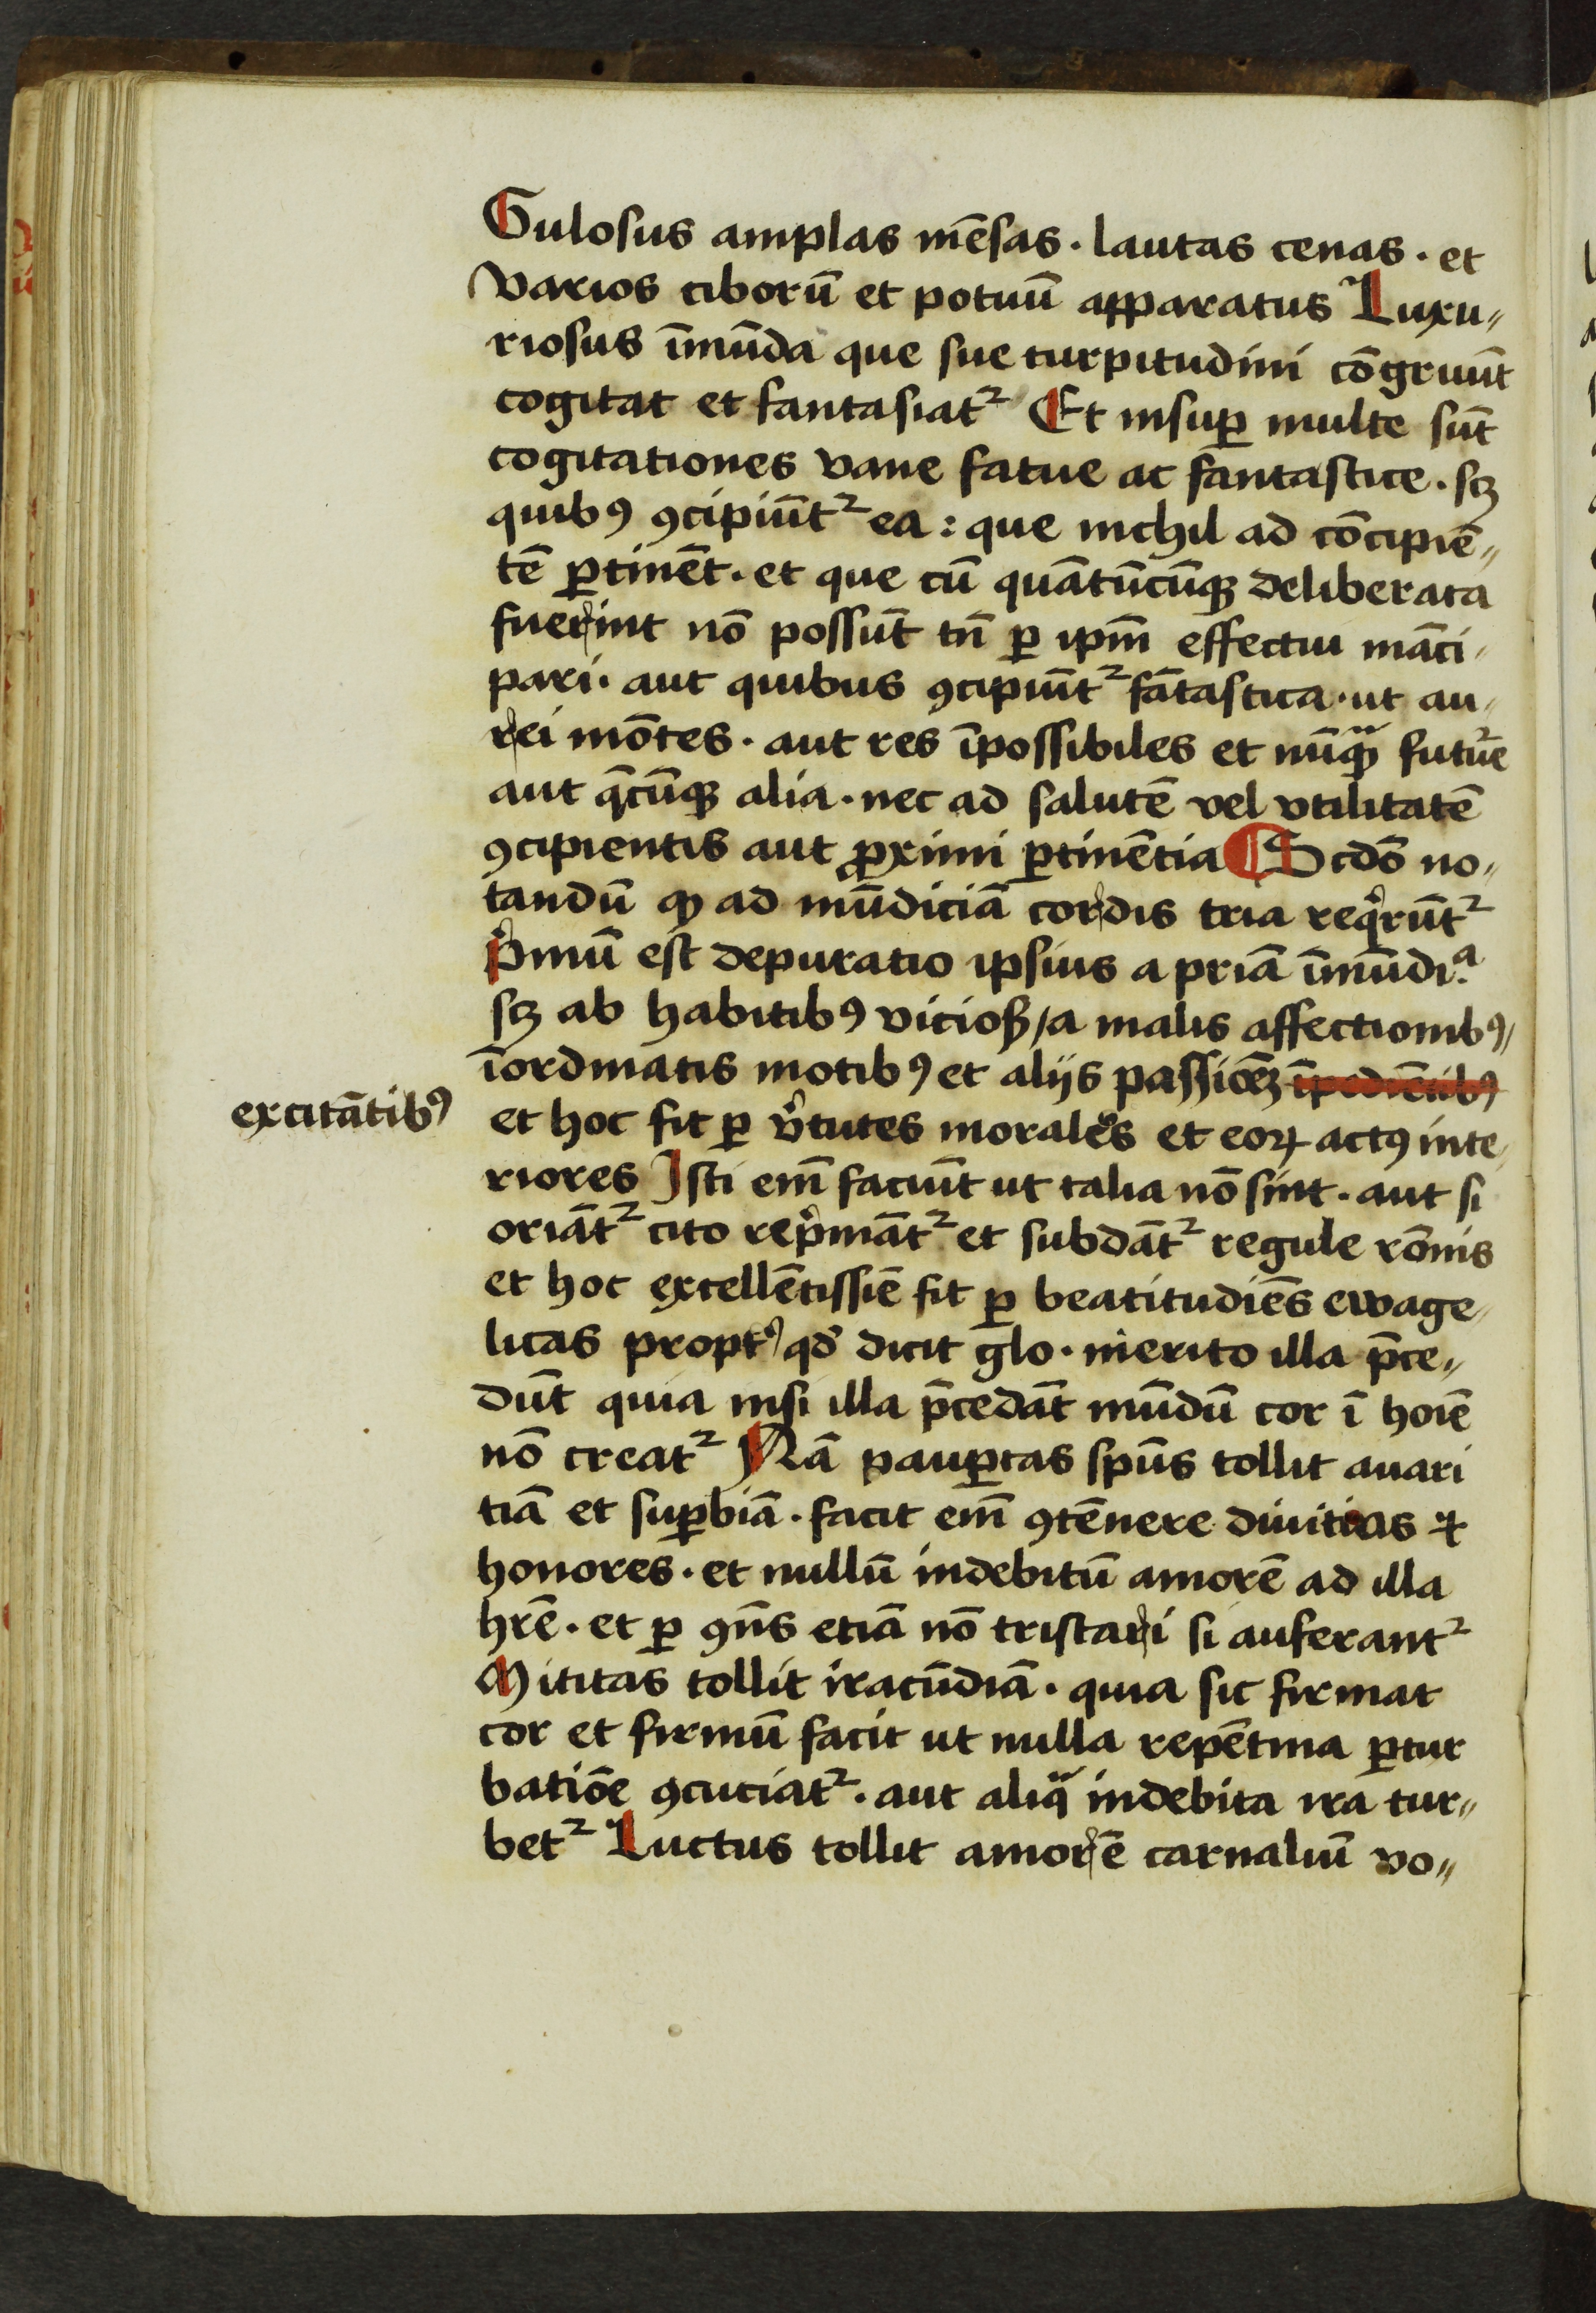 Gulosus amplas mēsas · lautas cenas · et
varios ciborū et potuū apparatus Luxu〃
riosus īmūda que sue turpitudini cōgruūt
cogitat et fantasiatᷣ Et insuꝑ multe sūt
cogitationes vane fatue ac fantastice · scꝫ
quibꝰ ꝯcipiūtᷣ ea : que nichil ad cōcipiē〃
tē ꝑtinēt · et que cū quātūcūqꝫ deliberata
fuerint nō possūt tn̄ ꝑ ipm̄ effectui māci〃
pari · aut quibus ꝯcipiūtᷣ fātastica · ut au〃
rei mōtes · aut res īpossibiles et nūqᷓꝫ futūe
aut q̄cūqꝫ alia · nec ad salutē vel vtilitatē
ꝯcipientis aut ꝓximi ꝑtinētia Scdō no〃
tandū ꝙ ad mūdiciā cordis tria reqͥrūtᷣ
Pͥmū est depuratio ipsius a priā īmūdiᵃ·
scꝫ ab habitibꝰ viciosꝭ / a malis affectionibꝰ〃
īordinatis motibꝰ et alijs passiōeꝫ īpediētibꝰ
excitātibꝰ
et hoc fit ꝑ vͥtutes morales et eoꝝ actꝰ inte〃
riores Isti em̄ faciūt ut talia nō sint · aut si
oriātᷣ cito repͥmātᷣ et subdātᷣ regule rōnis
et hoc excellētissīe fit ꝑ beatitudiēs ewāge〃
licas proptꝰ qd̓ dicit glo · merito illa p̄ce〃
dūt quia nisi illa p̄cedāt mūdū cor ī hoīe
nō creatᷣ Nā pauꝑtas spūs tollit auari
tiā et suꝑbiā · facit em̄ ꝯtēnere diuitias ⁊
honores · et nullū indebitū amorē ad illa
hr̄e · et ꝑ ꝯn̄s etiā nō tristari si auferantᷣ
Mititas tollit iracūdiā · quia sic firmat
cor et firmū facit ut nulla repētina ꝑtur
batiōe ꝯcuciatᷣ · aut aliqᷓ indebita ira tur〃
betᷣ Luctus tollit amorē carnaliū vo〃